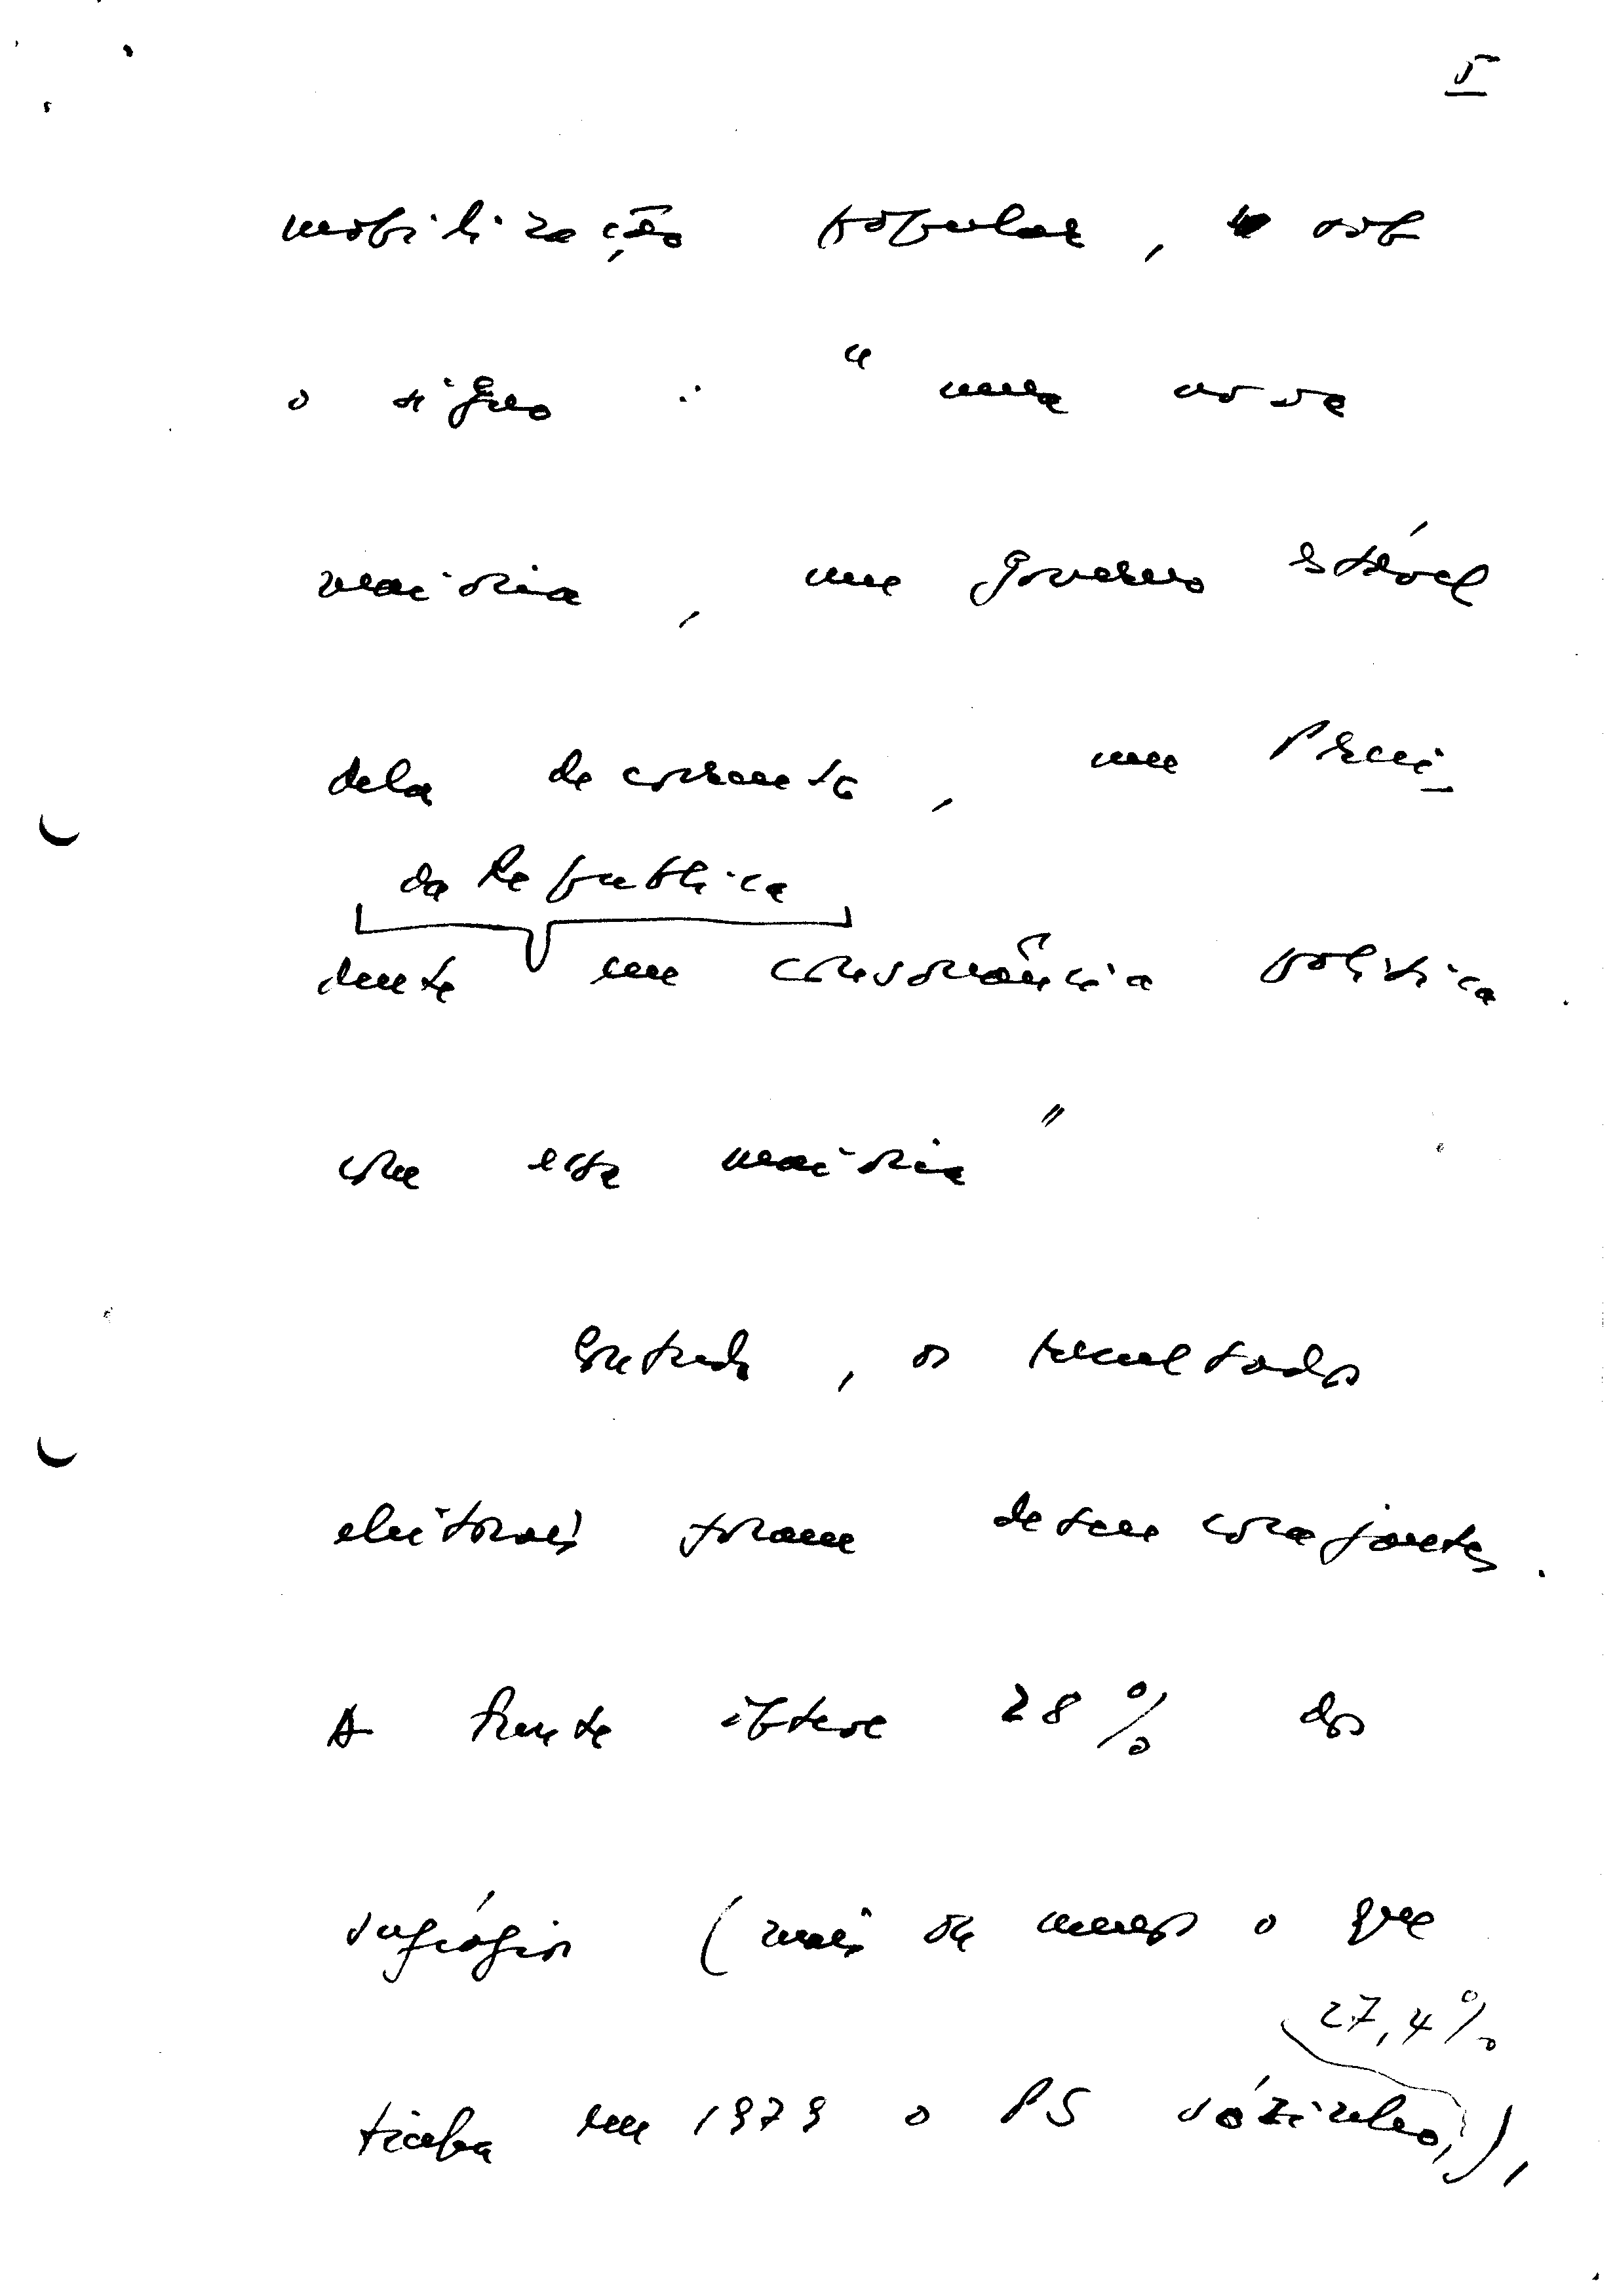 5
mobilização popular, sob
o signo : "uma nova
maioria, um governo estável
dela decorrente, um Presi-
da Republica
dente em consonância politica
com essa maioria"
Contudo, os resultados
eleitorais foram desencorajantes.
A Frente obteve 28% dos
sufrágios (mais ou menos o que
27,4%
tinha em 1979 o PS sózinho,),